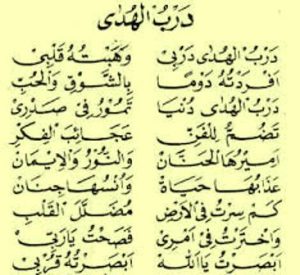 دَرْبُ الْهُدٰى
دَرْبُ الْهُدٰى دَرْبِى وَهَبْتُهُ قَلْبِى
اَفْرَدْتُهُ دَوْمًا بِالشَّوْقِ وَالْحُبِّ
دَرْبُ الْهُدٰى دُنْيَا تَمُوْرُ فِى صَدْرِى
تَضُمُّ لِلْفَنِّ عَجَائِبَ الْفِكْرِ
اَمِيْرُهَا الْحَنَّانُ وَالنُّوْرُ وَالْاِيْمَانُ
عَذَابُهَا حَيَاةٌ وَاُنْسُهَا جِنَانٌ
كَمْ سِرْتُ فِى الْاَرْضِ مُضَلَّلَ الْقَلْبِ
وَاخْتَرْتُ فِى اَمْرِى فَصَحْتُ يَارَبِّى
اَبْصَرْتُ يَااَللهُ اَبْصَرْتُهُ قُرْبِى